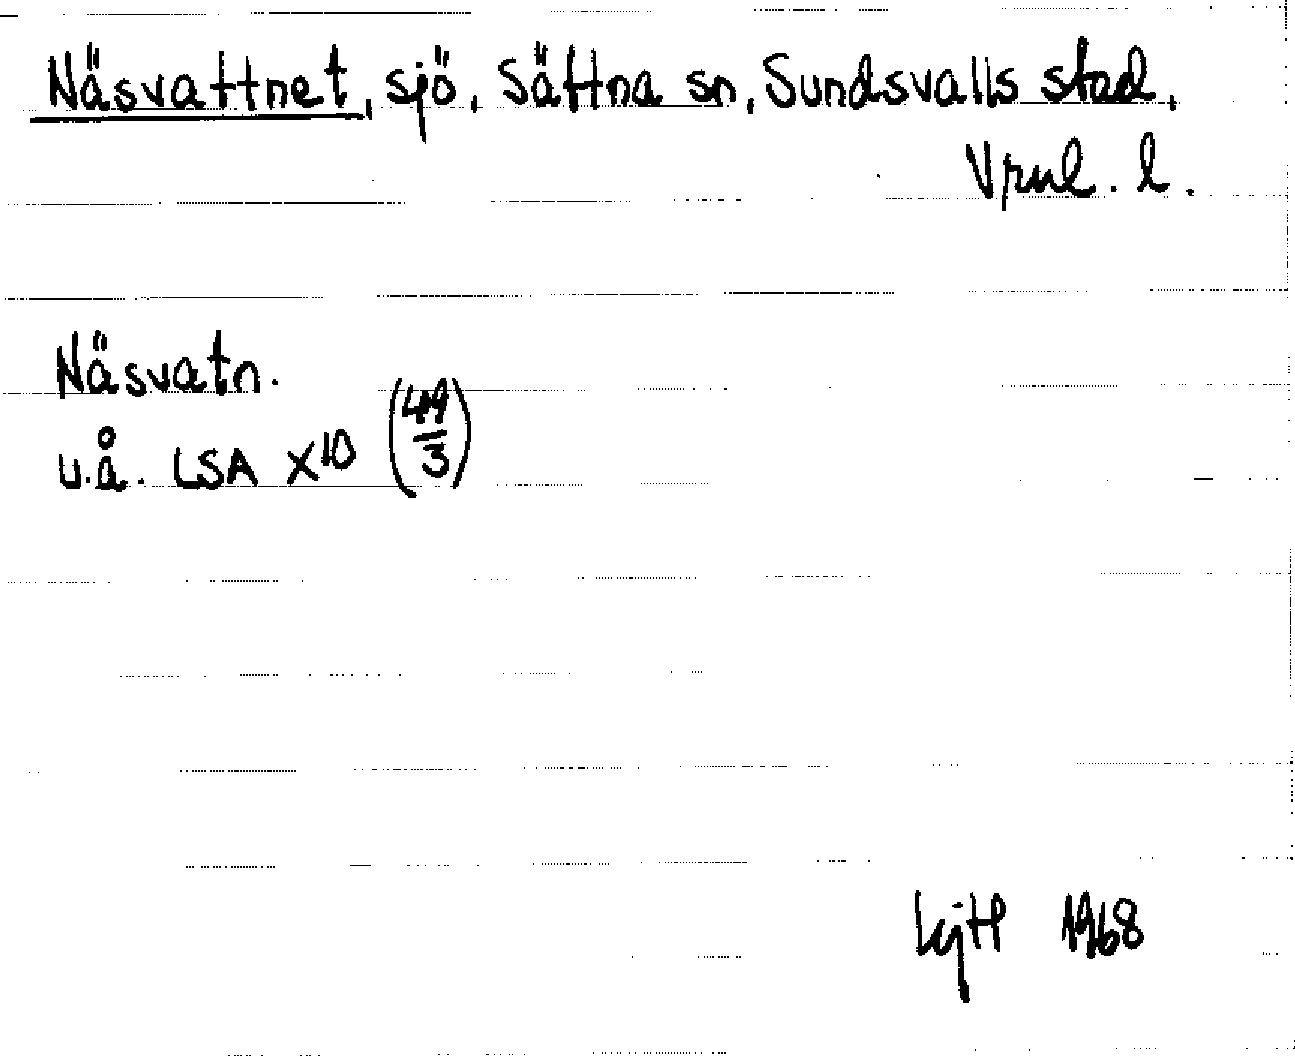 Näsvattnet, sjö, Sättna sn, Sundsvalls stad,
Vrnl. l.
Näsvatn.
u.å. LSA X10 (49/3)
1968